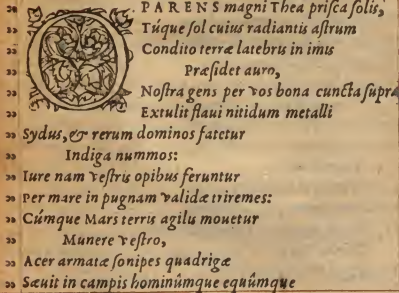 O PARENS magni Thea priſca ſolis,
„ Túque ſol cuius radiantis aſtrum
„ Condito terræ latebris in imis
„ Præſidet auro,
„ Noſtra gens per vos bona cuncta ſupra
„ Extulit flaui nitidum metalli
„ Sydus, & rerum dominos fatetur
„ Indiga nummos:
„ Iure nam veſtris opibus feruntur
„ Per mare in pugnam validæ triremes:
„ Cúmque Mars terris agilis mouetur
„ Munere veſtro,
„ Acer armatæ ſonipes quadrigæ
„ Sæuit in campis hominûmque equûmque